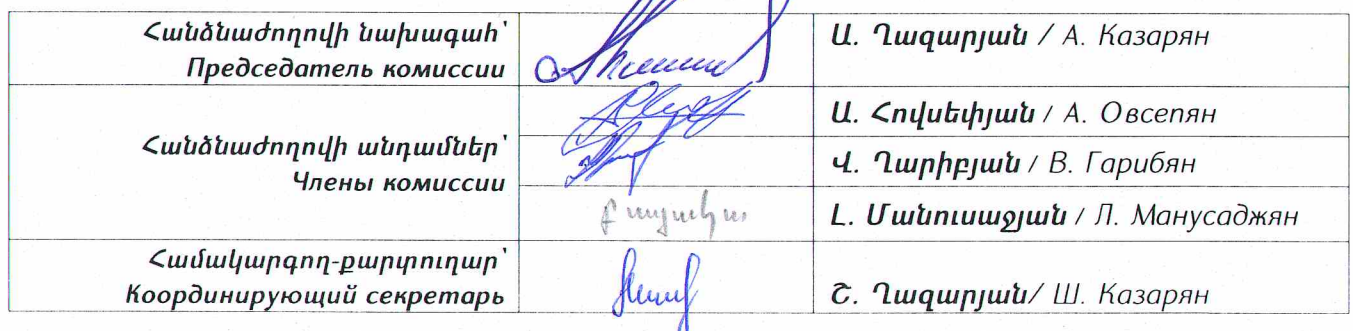 Հանձնաժողովի նախագահ՝
Председатель комиссии
Ա. Ղազարյան / А. Казарян
Հանձնաժողովի անդամներ՝
Члены комиссии
Ա. Հովսեփյան / А. Овсепян
Վ. Ղարիբյան / В. Гарибян
Լ. Մանուսաջյան / Л. Манусаджян
Համակարգող-քարտուղար՝
Координирующий секретарь
Շ. Ղազարյան/ Ш. Казарян